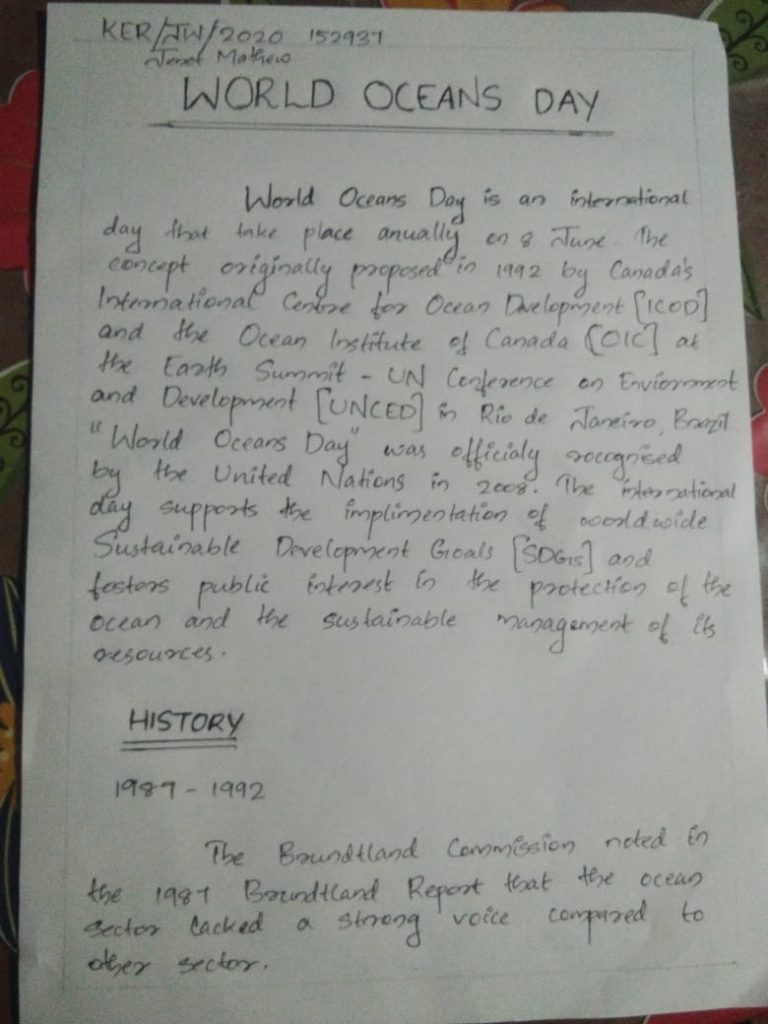 KER/JW/2020 152937
Jenet Mathew
WORLD OCEANS DAY
World Oceans Day is an international
day that take place anually on 8 June. The
concept originally proposed in 1992 by Canada's
International Centre for Ocean Development [ICOD]
and the Ocean Institute of Canada [OIC] at
the Earth Summit - UN Conference on Enviornment
and Development [UNCED] in Rio de Janeiro, Brazil.
"World Oceans Day" was officialy recognised
by the United Nations in 2008. The international
day supports the implimentation of worldwide
Sustainable Development Goals [SDGs] and
fosters public interest in the protection of the
ocean and the sustainable management of its
resources.
HISTORY
1987 - 1992
The Brundtland Commission noted in
the 1987 Brundtland Report that the ocean
sector lacked a strong voice compared to
other sector.